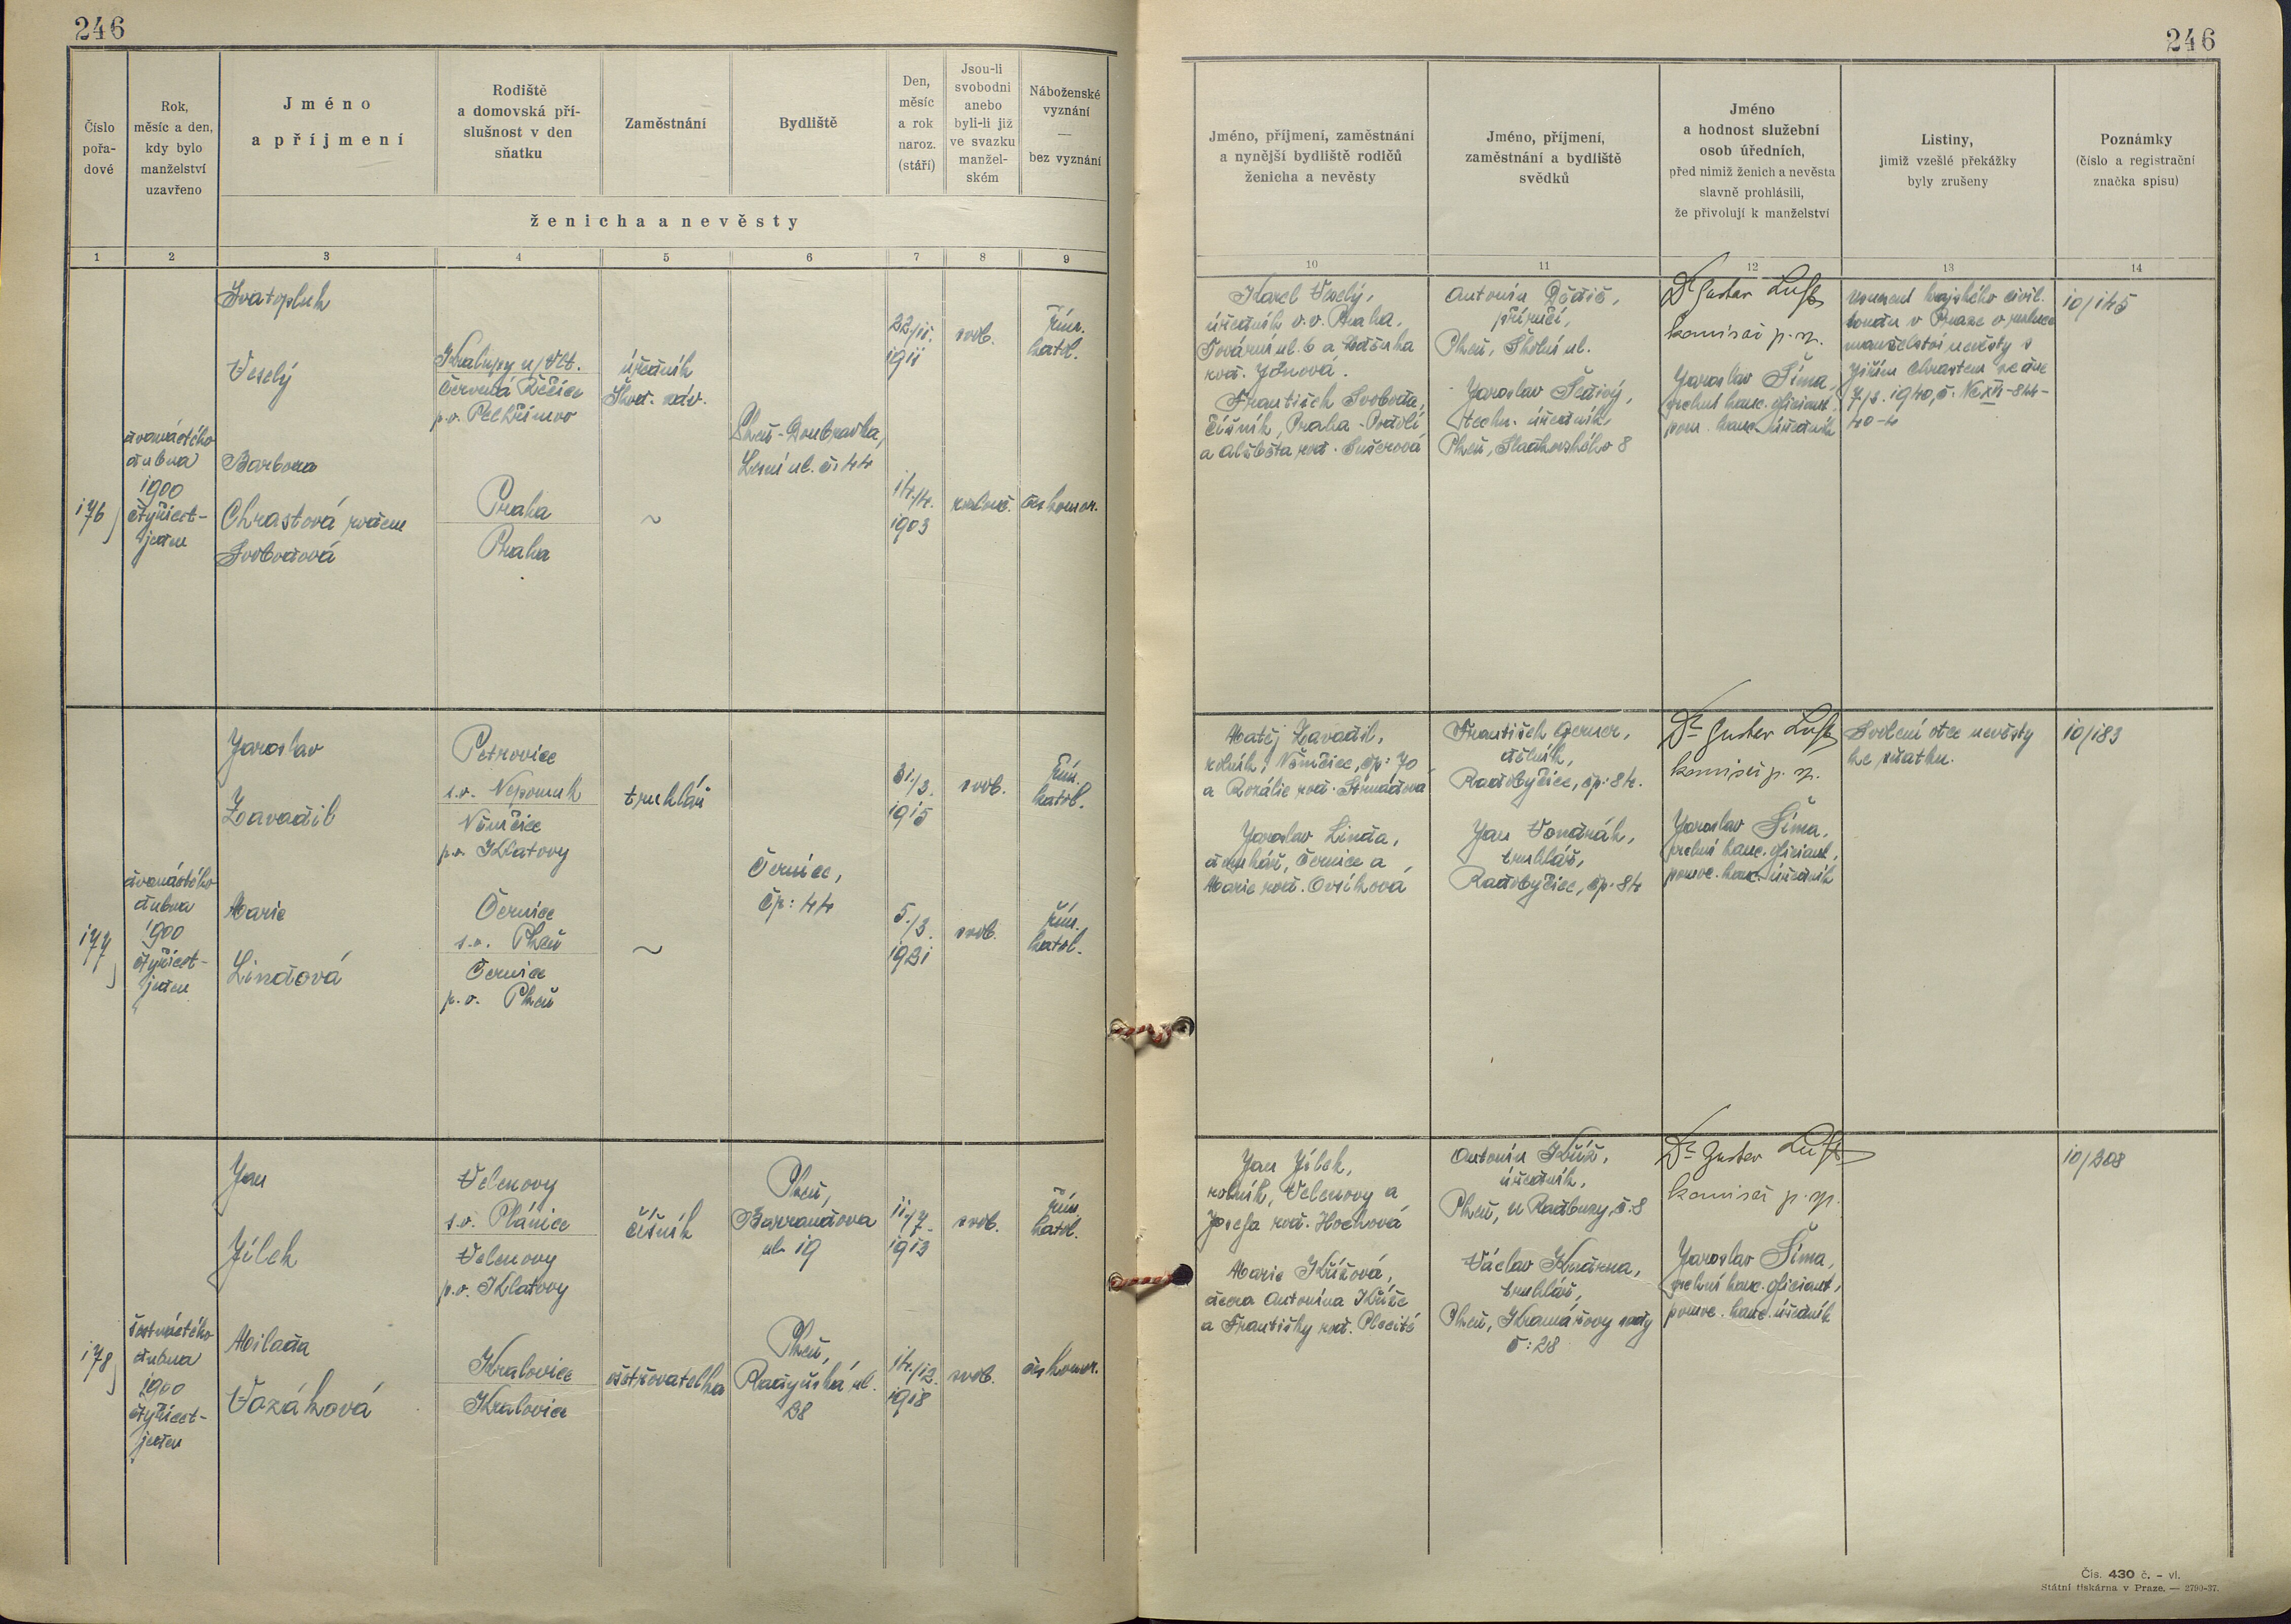 246
246
Číslo
pořa-
dové
Rok,
měsíc a den,
kdy bylo
manželství
uzavřeno
Jméno
a příjmení
Rodiště
a domovská pří-
slušnost v den
sňatku
Zaměstnání
Bydliště
Den,
měsíc
a rok
naroz.
(stáří)
Jsou-li
svobodni
anebo
byli-li již
ve svazku
manžel-
ském
Náboženské
vyznání
—
bez vyznání
ženicha a nevěsty
Jméno, příjmení, zaměstnání
a nynější bydliště rodičů
ženicha a nevěsty
Jméno, příjmení,
zaměstnání a bydliště
svědků
Jméno
a hodnost služební
osob úředních,
před nimiž ženich a nevěsta
slavně prohlásili,
že přivolují k manželství
Listiny,
jimiž vzešlé překážky
byly zrušeny
Poznámky
(číslo a registrační
značka spisu)
1 2 3 4 5 6 7 8 9
10 11 12 13 14
176
dvanáctého
dubna
1900
čtyřicet-
jeden
Svatopluk
Veselý
Kralupy n/Vlt.
Červená Řečice
p.o. Pelhřimov
úředník
Škod. záv.
22/11.
1911
svob.
řím.
katol.
Plzeň-Doubravka,
Lesní ul. č: 44
Barbora
Chrastová rozem
Svobodová
Praha
Praha
~
14./4.
1903
rozluč.
čs. komor.
Karel Veselý,
úředník v.v. Praha,
Tovární ul. 6 a Ludmila
roz. Jónová.
František Svoboda,
číšník, Praha-Podolí
a Alžběta roz. Sušerová
Antonín Dědič,
příručí,
Plzeň, Školní ul.
Jaroslav Šedivý,
techn. úředník,
Plzeň, Sladkovského 8
Dr Gustav Luft
komisař p. sp.
Jaroslav Šíma,
právní kanc. oficiant,
pom. kanc. úředník
usnesení krajského civil.
soudu v Praze o rozluce
manželství nevěsty s
Jiřím Chrastem ze dne
7/3. 1940, č. Nc XVI-844-
40-4
10/145
177
dvanáctého
dubna
1900
čtyřicet-
jeden
Jaroslav
Zavadil
Petrovice
s.o. Nepomuk
Němčice
p.o. Klatovy
truhlář
31./3.
1915
svob.
řím.
katol.
Černice,
čp: 44
Marie
Lindová
Černice
s.o. Plzeň
Černice
p.o. Plzeň
~
5./3.
1921
svob.
řím.
katol.
Matěj Zavadil,
rolník, Němčice, čp: 70
a Rozálie roz. Strnadová
Jaroslav Linda,
truhlář, Černice a
Marie roz. Ovsíková
František Gerner,
dělník,
Radobyčice, čp: 84.
Jan Vondrák,
truhlář,
Radobyčice, čp: 84
Dr Gustav Luft
komisař p. sp.
Jaroslav Šíma,
právní kanc. oficiant,
pomoc. kanc. úředník
Svolení otce nevěsty
ke sňatku.
10/183
178
šestnáctého
dubna
1900
čtyřicet-
jeden
Jan
Jílek
Velenovy
s.o. Plánice
Velenovy
p.o. Klatovy
číšník
Plzeň,
Barrandova
ul. 19
11./7.
1913
svob.
řím.
katol.
Milada
Vozáková
Kralovice
Kralovice
ošetřovatelka
Plzeň,
Radyňská ul.
28
14./12.
1918
svob.
čs. komor.
Jan Jílek,
rolník, Velenovy a
Josefa roz. Hochová
Marie Křížová,
dcera Antonína Kříže
a Františky roz. Plecité
Antonín Kříž,
úředník,
Plzeň, u Radbuzy, č: 8
Václav Kudrna,
truhlář,
Plzeň, Kramářovy sady
č: 28
Dr Gustav Luft
komisař p. sp.
Jaroslav Šíma,
právní kanc. oficiant,
pomoc. kanc. úředník
10/208
Čís. 430 č. - vl.
Státní tiskárna v Praze. — 2790-37.